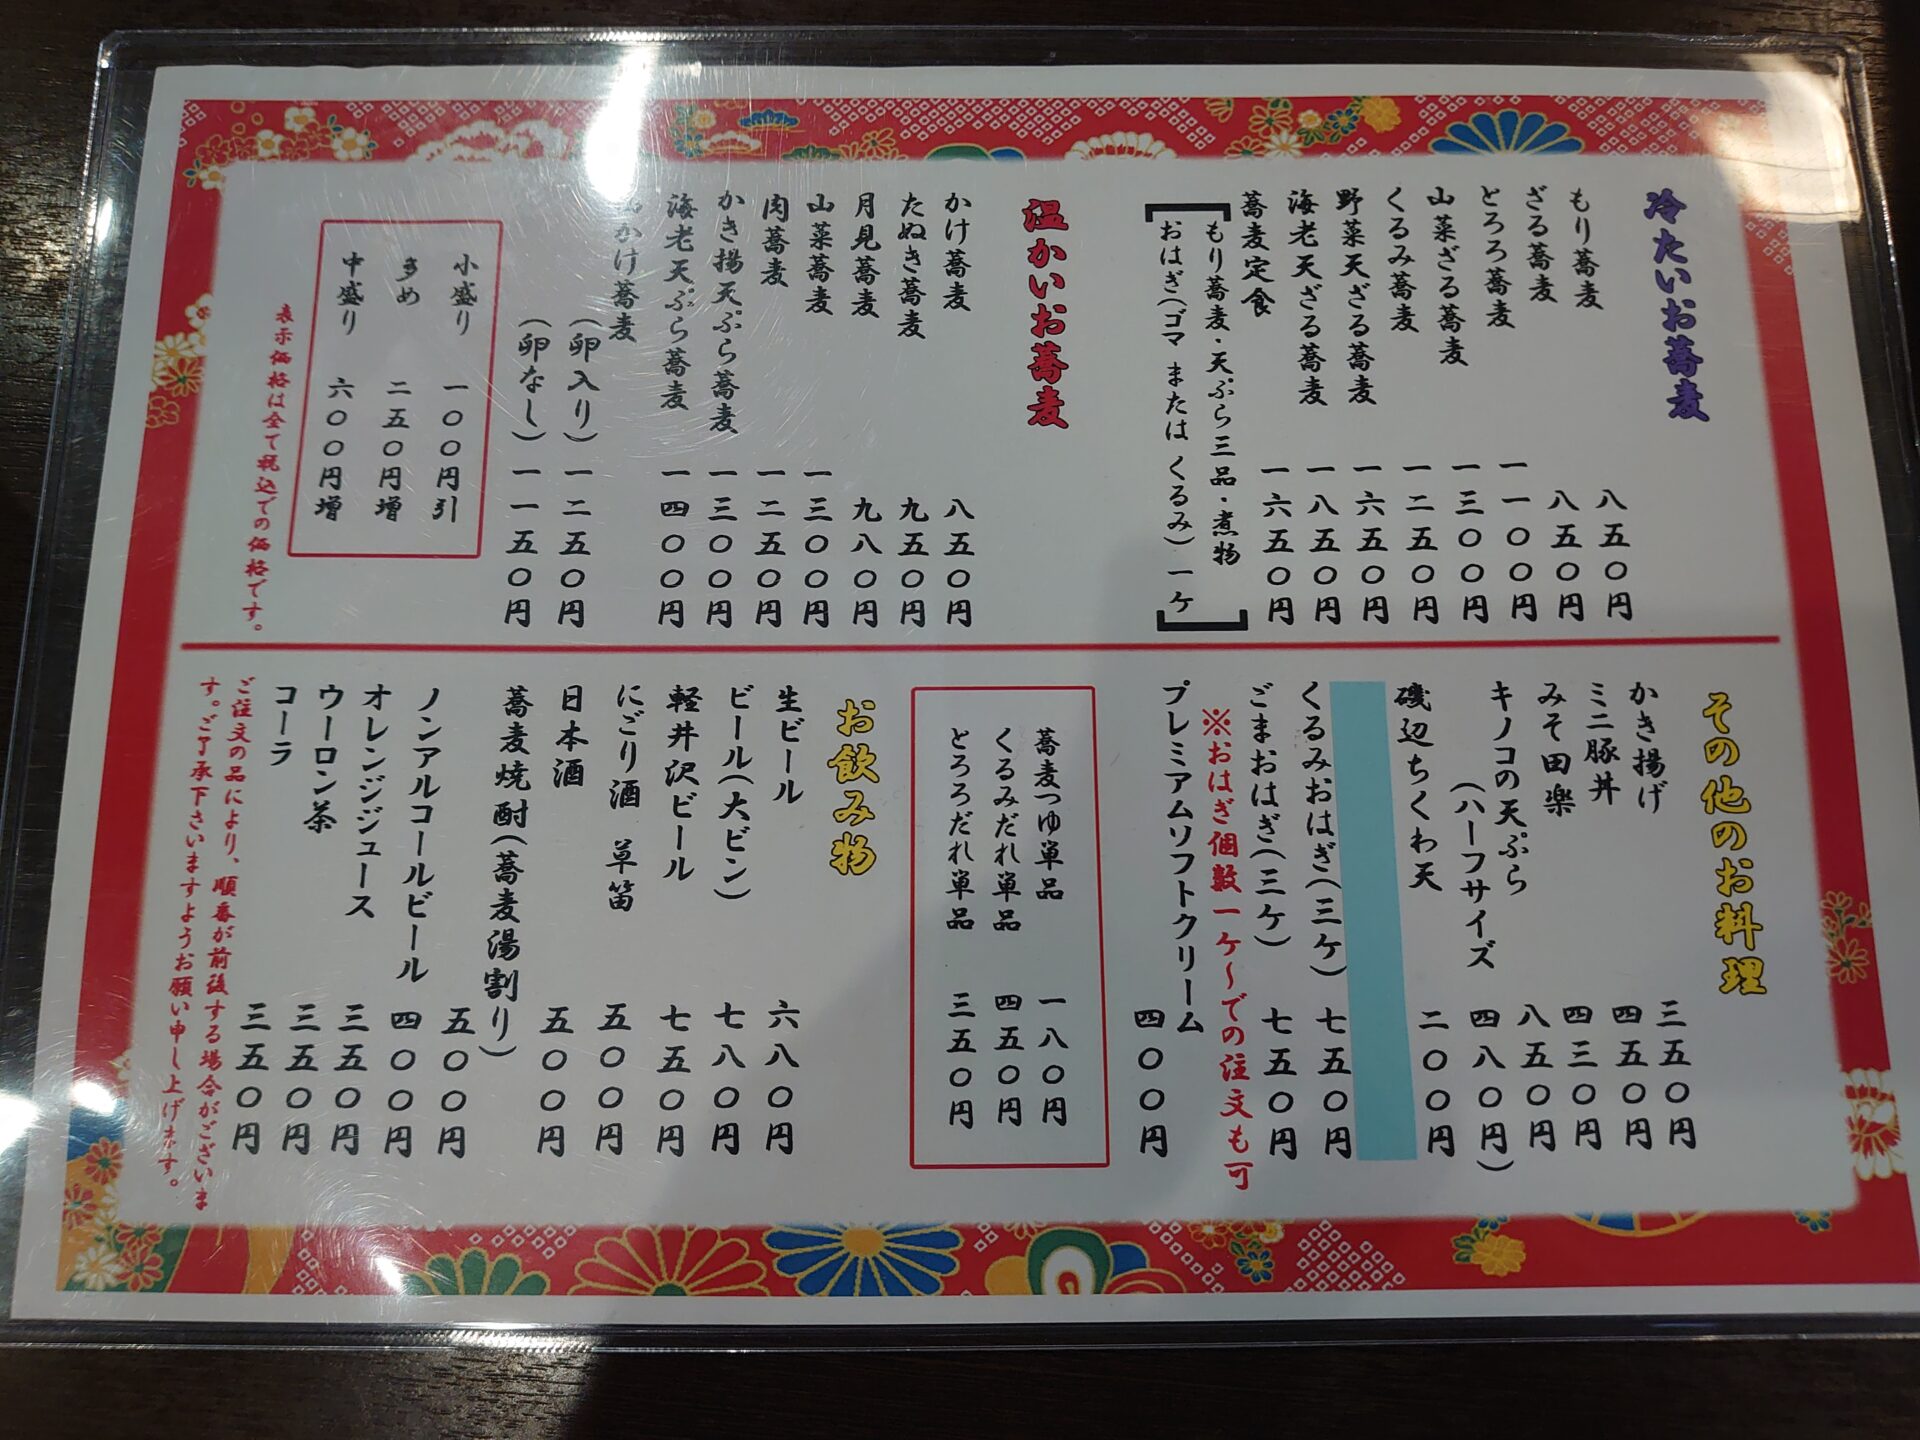 冷たいお蕎麦
もり蕎麦 八五〇円
ざる蕎麦 八五〇円
とろろ蕎麦 一一〇〇円
山菜ざる蕎麦 一三〇〇円
くるみ蕎麦 一二五〇円
野菜天ざる蕎麦 一六五〇円
海老天ざる蕎麦 一八五〇円
蕎麦定食 一六五〇円
もり蕎麦・天ぷら三品・煮物
おはぎ(ゴマ または くるみ)一ケ
温かいお蕎麦
かけ蕎麦 八五〇円
たぬき蕎麦 九五〇円
月見蕎麦 九八〇円
山菜蕎麦 一三〇〇円
肉蕎麦 一二五〇円
かき揚天ぷら蕎麦 一三〇〇円
海老天ぷら蕎麦 一四〇〇円
かけ蕎麦
(卵入り) 一二五〇円
(卵なし) 一一五〇円
小盛り 一〇〇円引
多め 二五〇円増
中盛り 六〇〇円増
表示価格は全て税込での価格です。
その他のお料理
かき揚げ 三五〇円
ミニ豚丼 四五〇円
みそ田楽 四三〇円
キノコの天ぷら 八五〇円
(ハーフサイズ 四八〇円)
磯辺ちくわ天 二〇〇円
くるみおはぎ(三ケ) 七五〇円
ごまおはぎ(三ケ) 七五〇円
※おはぎ個数一ケ〜での注文も可
プレミアムソフトクリーム 四〇〇円
蕎麦つゆ単品 一八〇円
くるみだれ単品 四五〇円
とろろだれ単品 三五〇円
お飲み物
生ビール 六八〇円
ビール(大ビン) 七八〇円
軽井沢ビール 七五〇円
にごり酒 草笛 五〇〇円
日本酒 五〇〇円
蕎麦焼酎(蕎麦湯割り) 五〇〇円
ノンアルコールビール 四〇〇円
オレンジジュース 三五〇円
ウーロン茶 三五〇円
コーラ 三五〇円
ご注文の品により、順番が前後する場合がございま
す。ご了承下さいますようお願い申し上げます。